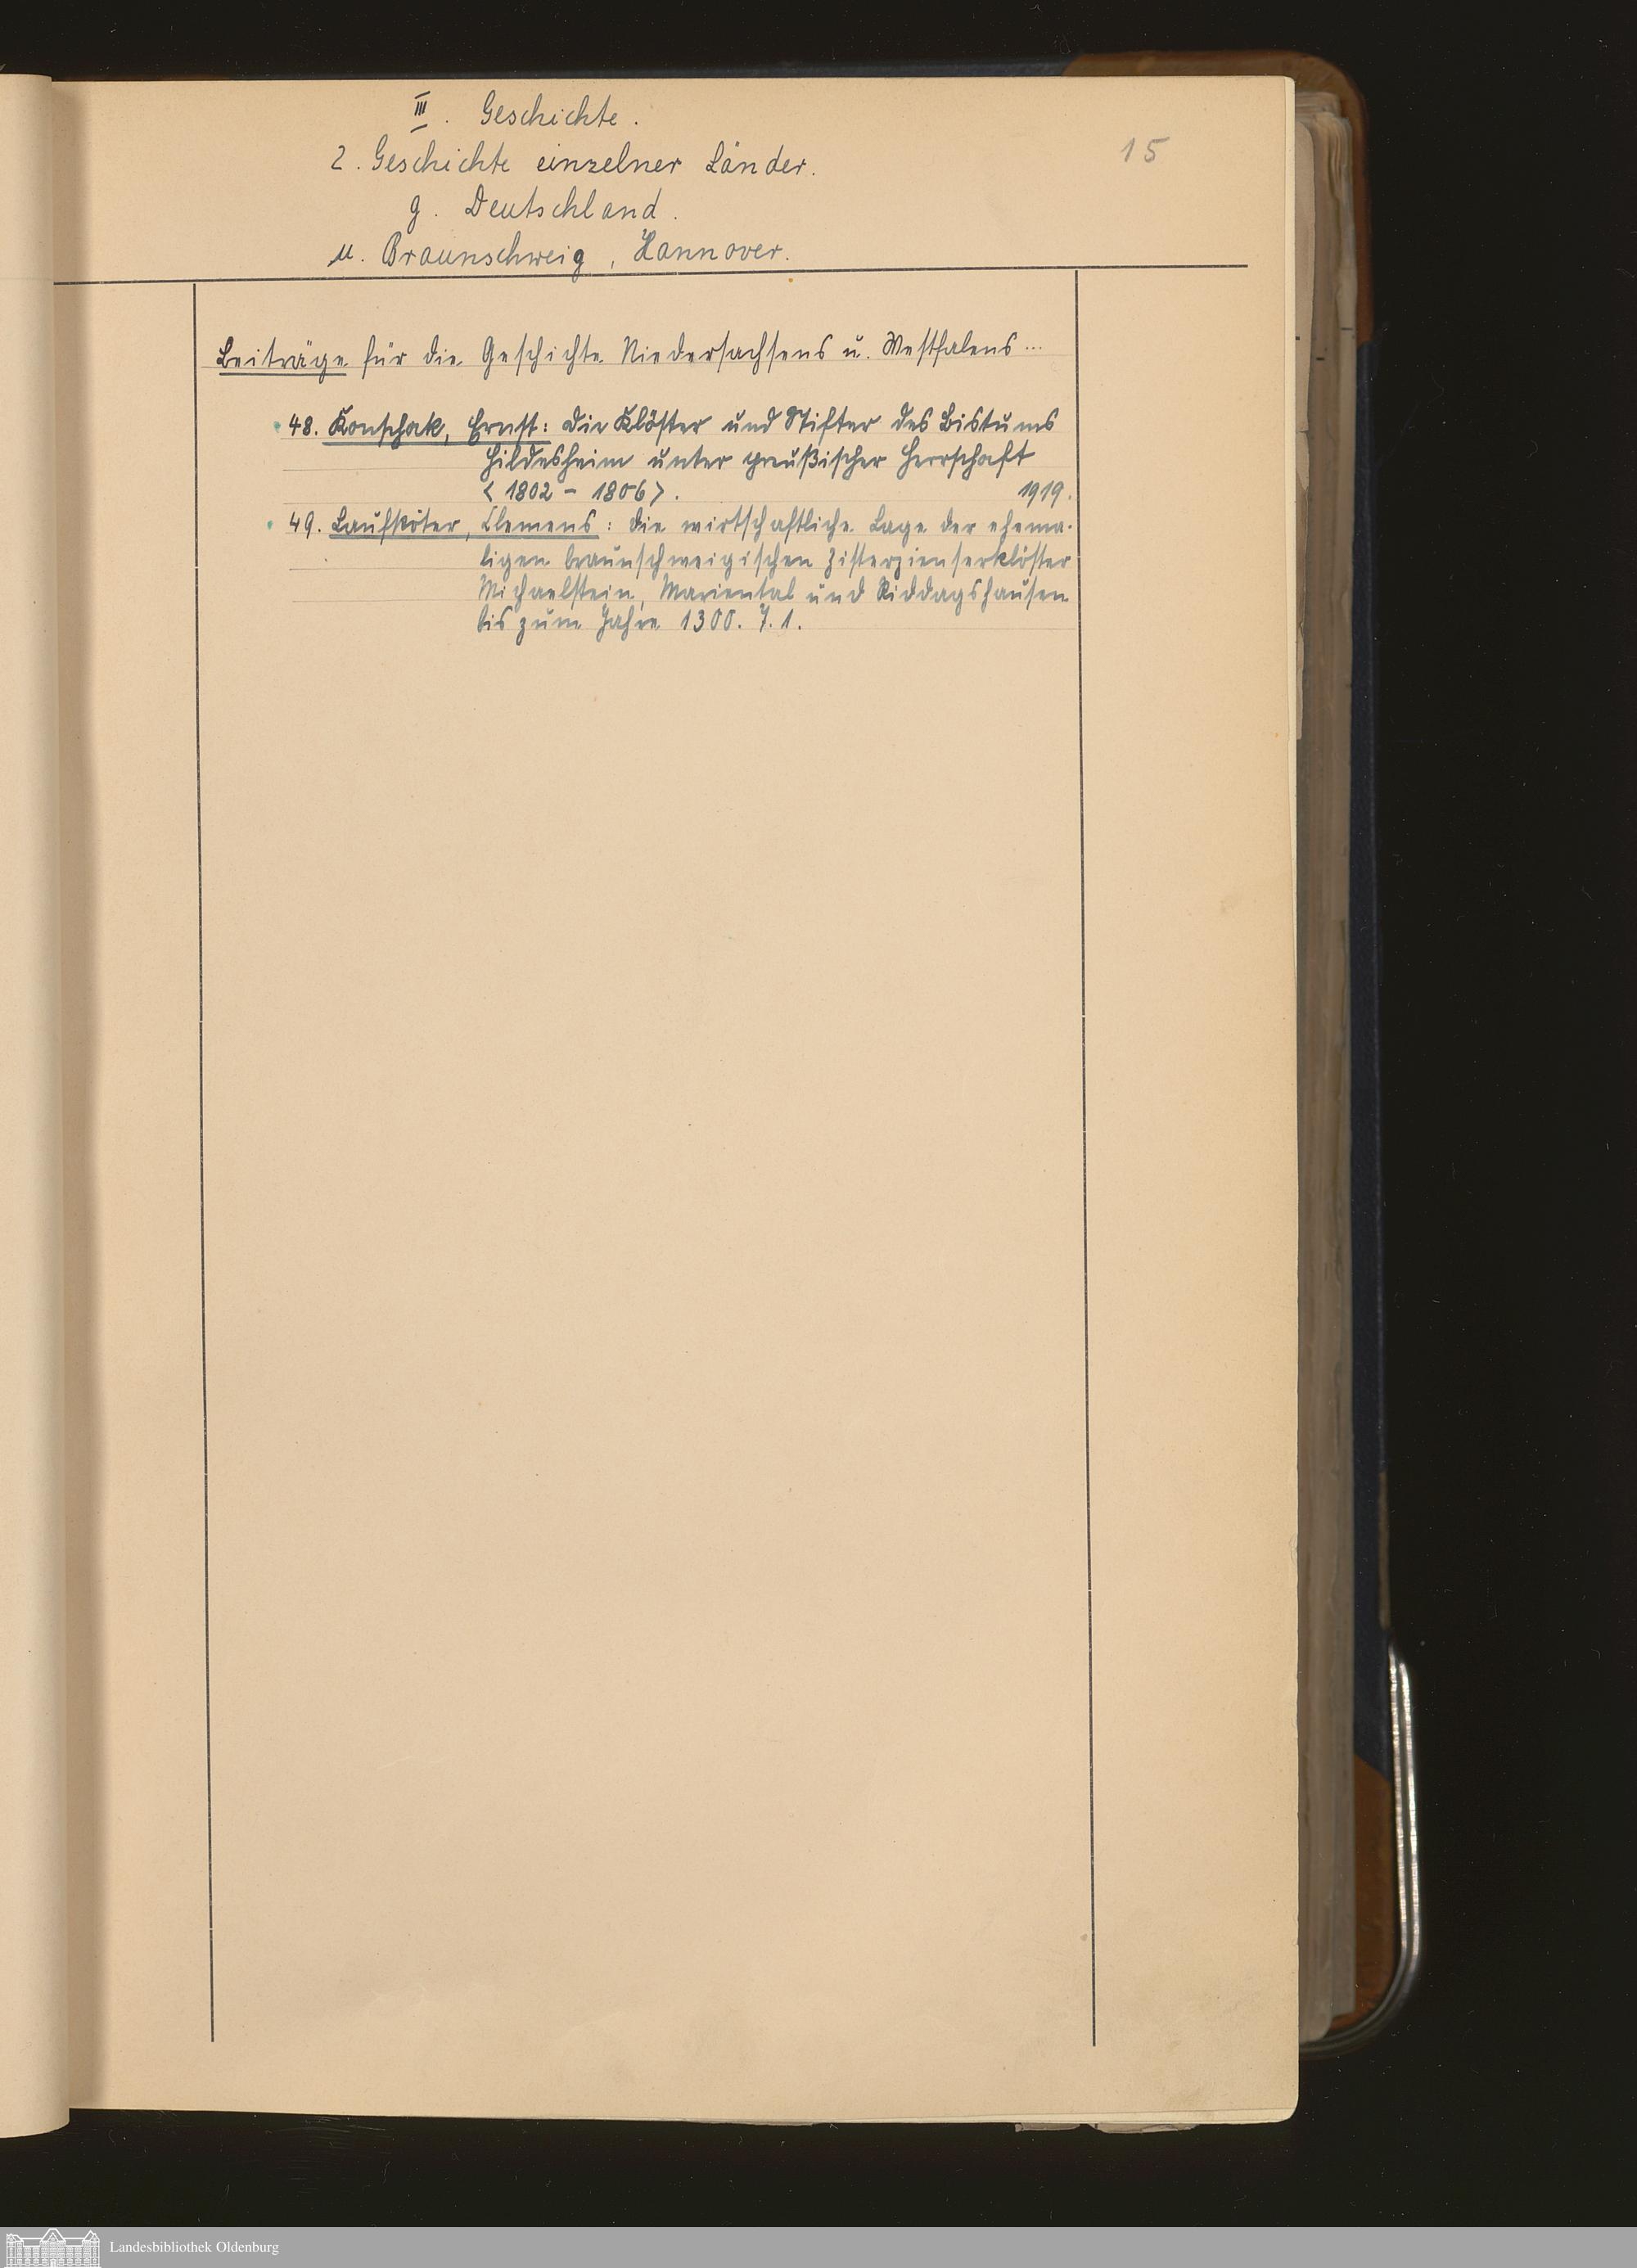 III. Geschichte.
15
2. Geschichte einzelner Länder.
g. Deutschland.
u. Braunschweig, Hannover.
Beiträge für die Geschichte Niedersachsens u. Westfalens...
48. Konschak, Ernst: Die Klöster und Stifter des Bistums
Hildesheim unter preußischer Herrschaft
<1802 - 1806>. 1919.
49. Laufköter, Clemens: Die wirtschaftliche Lage der ehema-
ligen braunschweigischen Zisterzienserklöster
Michaelstein, Mariental und Riddagshausen
bis zum Jahre 1300. T. 1.
Landesbibliothek Oldenburg